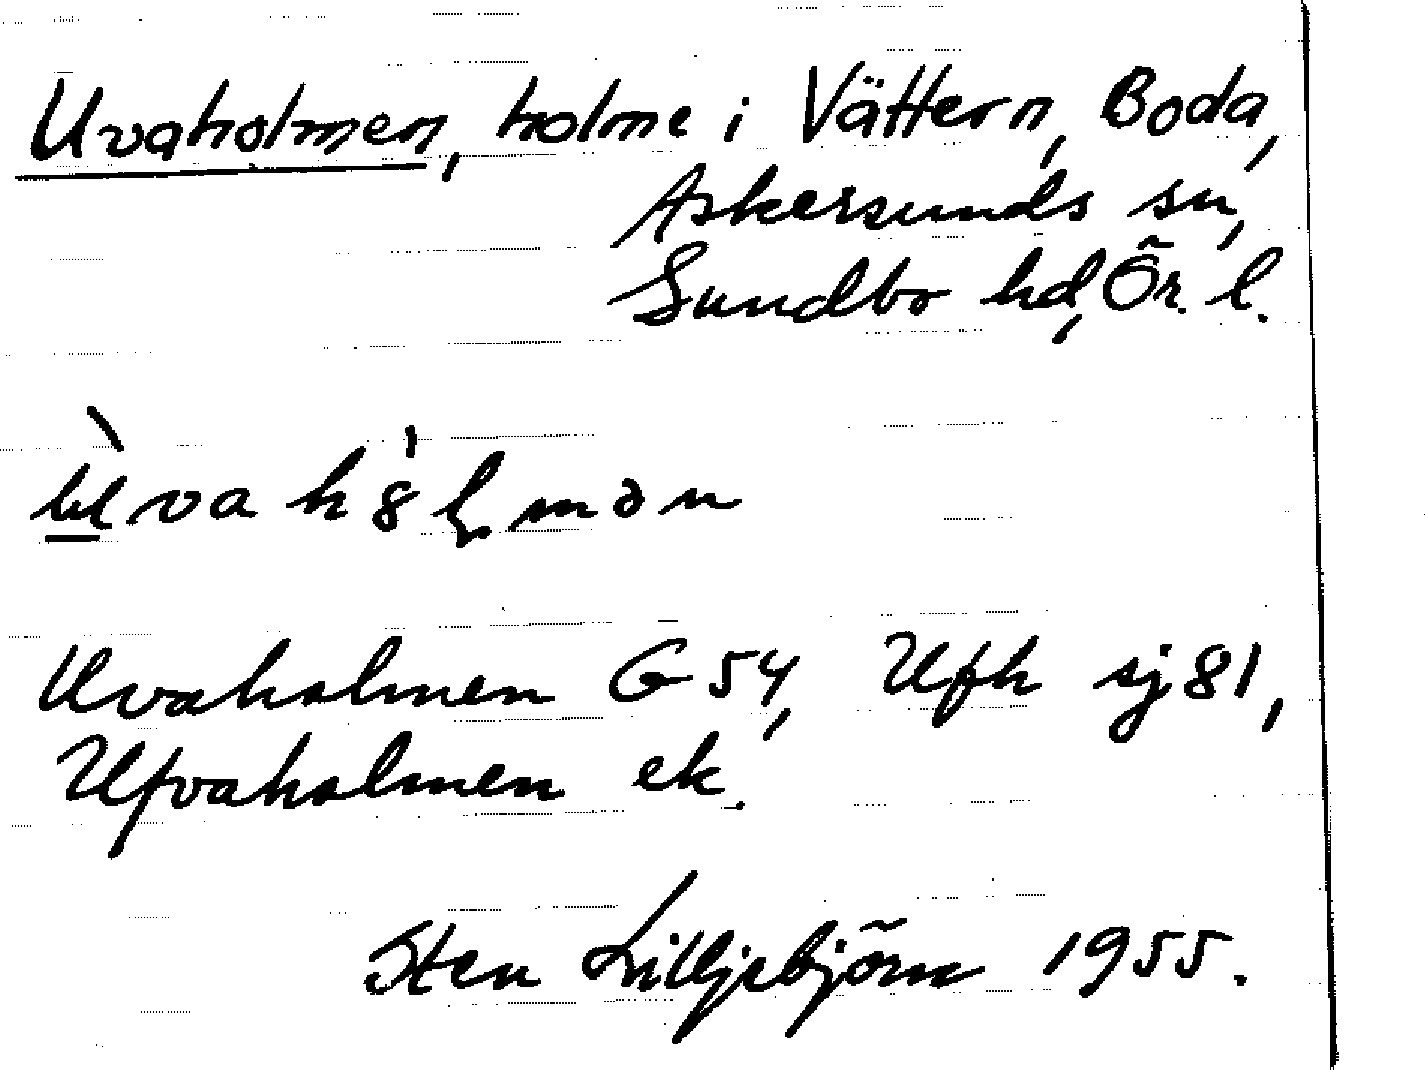 Uvaholmen, holme i Vättern, Boda,
Askersunds sn,
Sundbo hd, Ör. l.
Uvaholmen G 54, Ufh sj 81,
Ufvaholmen ek.
Sten Lilljebjörn 1955.